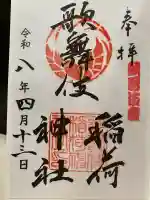 奉拝
歌舞伎
稲荷
神社
令和八年四月十三日